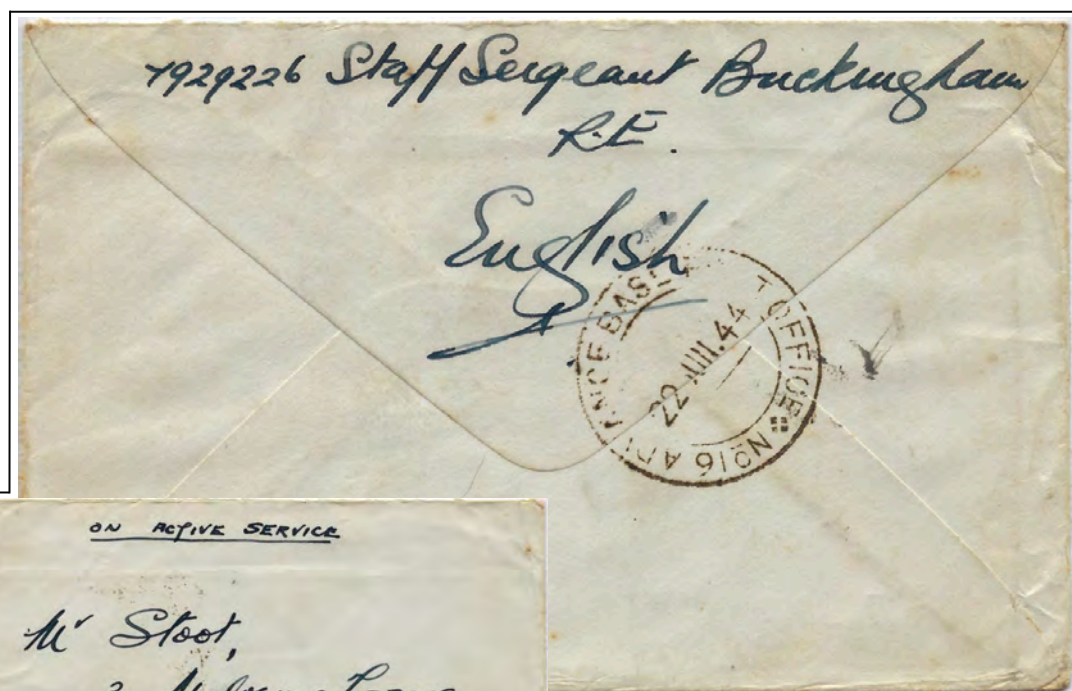 7929226 Staff Sergeant Buckingham
R.E.
English
No 16 ADVANCE BASE T OFFICE
22 JUL.44
ON ACTIVE SERVICE
Mr Stoot,